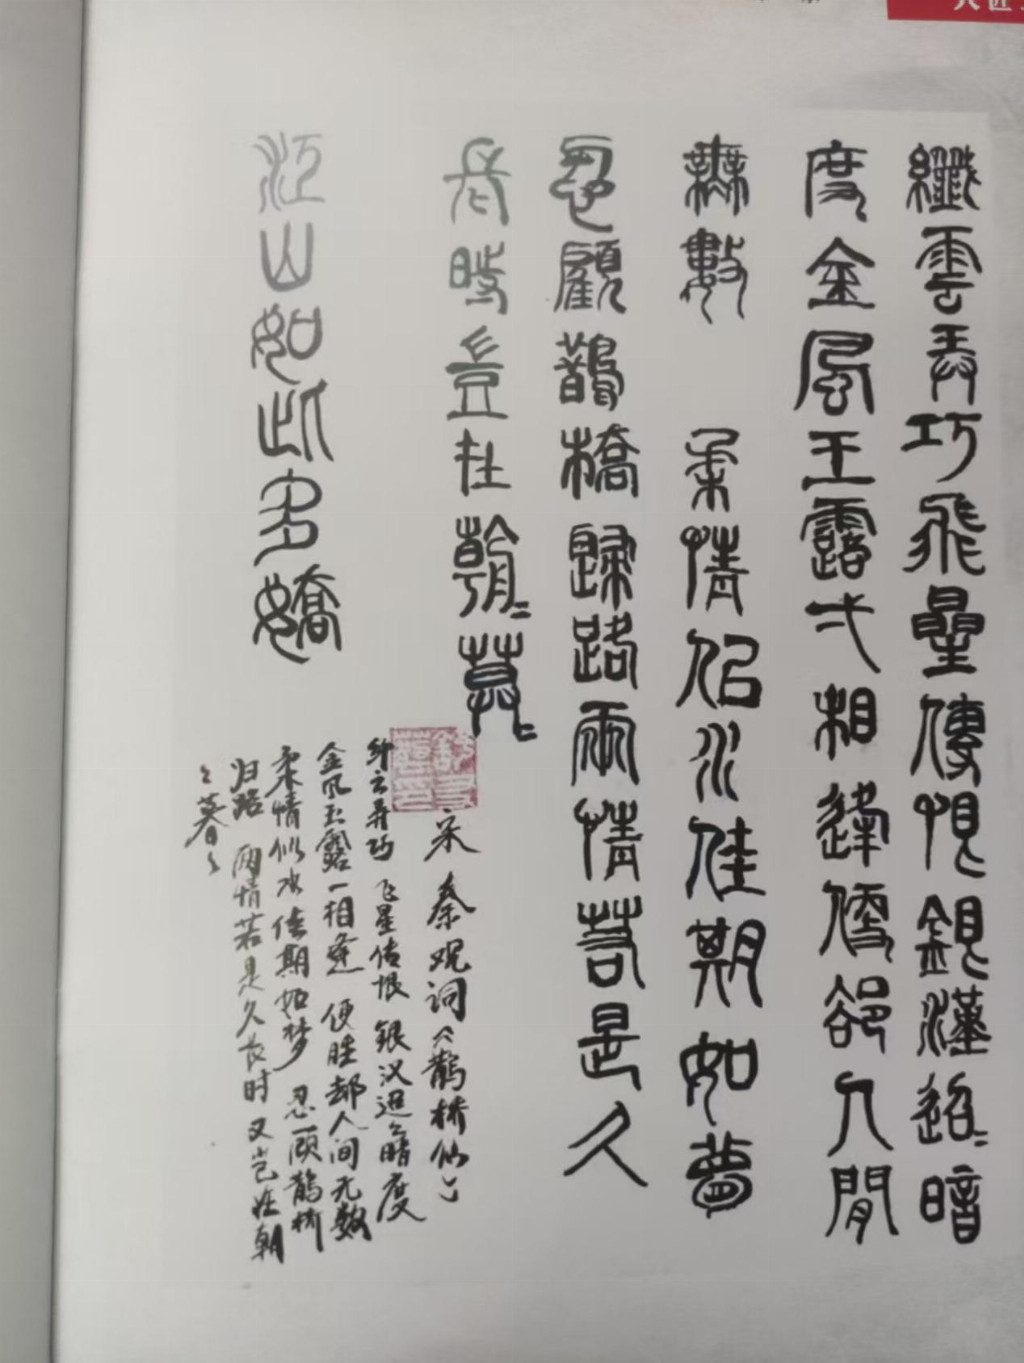 纖雲弄巧飛星傳恨銀漢迢〻暗
度金風玉露弌相逢便卻人間
無數 柔情佀水佳期如夢
忍顧鵲橋歸路兩情若是久
長時豈在朝〻暮〻
宋秦观词《鹊桥仙》
纤云弄巧 飞星传恨 银汉迢〻暗度
金风玉露一相逢 便胜却人间无数
柔情似水佳期如梦 忍顾鹊桥
归路 两情若是久长时 又岂在朝
〻暮〻
江山如此多嬌